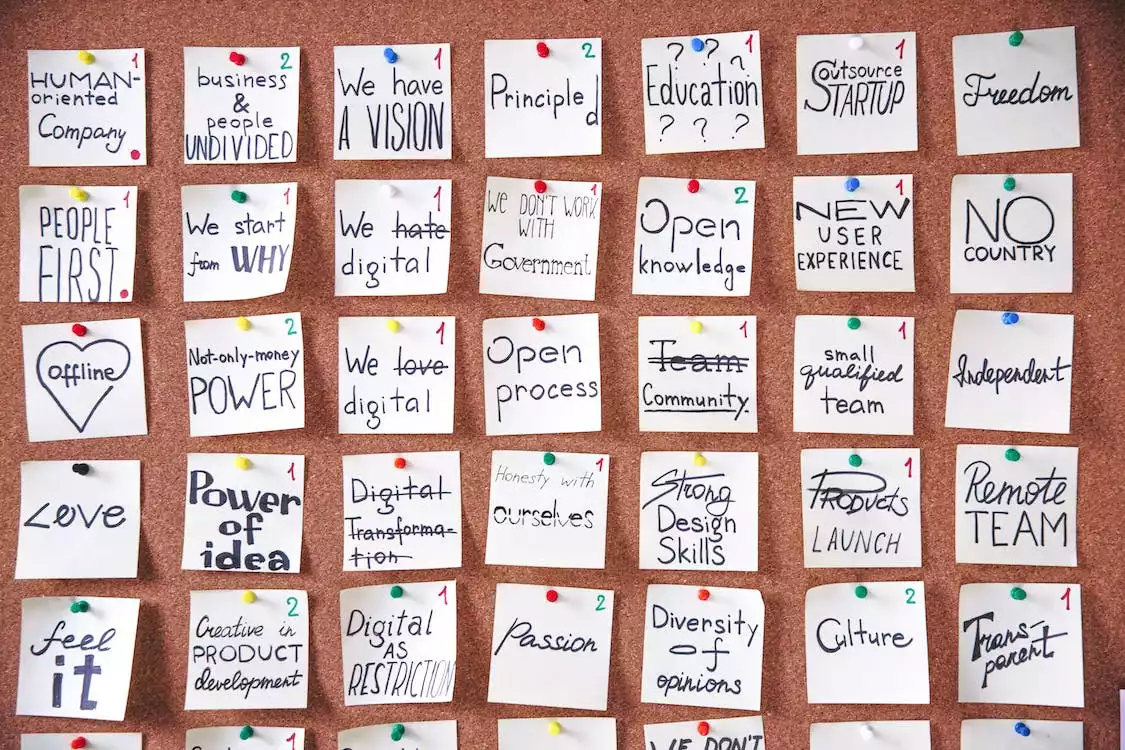 1
HUMAN-
oriented
Company
2
business
&
people
UNDIVIDED
1
We have
A VISION
2
Principled
1
? ? ?
Education
? ? ?
1
Outsource
STARTUP
Freedom
1
PEOPLE
FIRST.
1
We start
from WHY
1
We hate
digital
1
WE DON'T WORK
WITH
Government
2
Open
knowledge
1
NEW
USER
EXPERIENCE
NO
COUNTRY
offline
2
Not-only-money
POWER
1
We love
digital
Open
process
1
Team
Community.
1
small
qualified
team
Independent
Love
1
Power
of
idea
Digital
Transforma-
tion
1
Honesty with
ourselves
Strong
Design
Skills
1
PRODUCTS
LAUNCH
Remote
TEAM
feel
it
2
Creative in
PRODUCT
development
1
Digital
AS
RESTRICTION
2
Passion
Diversity
of
opinions
2
Culture
1
Trans-
parent
1
WE DON'T